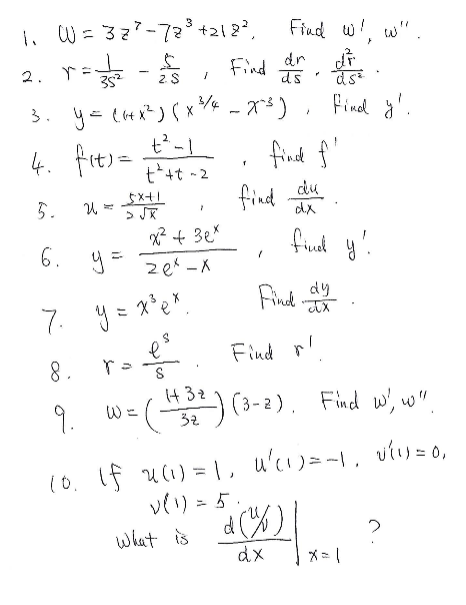 1. W = 3z⁷-7z³+21z². Find w', w''
2. r = 1/3s² - 5/2s, Find dr/ds, d²r/ds².
3. y = (1+x²)(x^3/4 - x^-3), Find y'.
4. f(t) = (t²-1)/(t²+t-2). find f'
5. u = (5x+1)/(2√x), find du/dx.
6. y = (x²+3e^x)/(2e^x-x), find y'.
7. y = x³e^x. Find dy/dx.
8. r = e^s/s. Find r'.
9. W = ((1+3z)/3z)(3-z). Find w', w''
10. If u(1)=1, u'(1)=-1, v'(1)=0,
v(1)=5.
What is d(u/v)/dx | x=1 ?